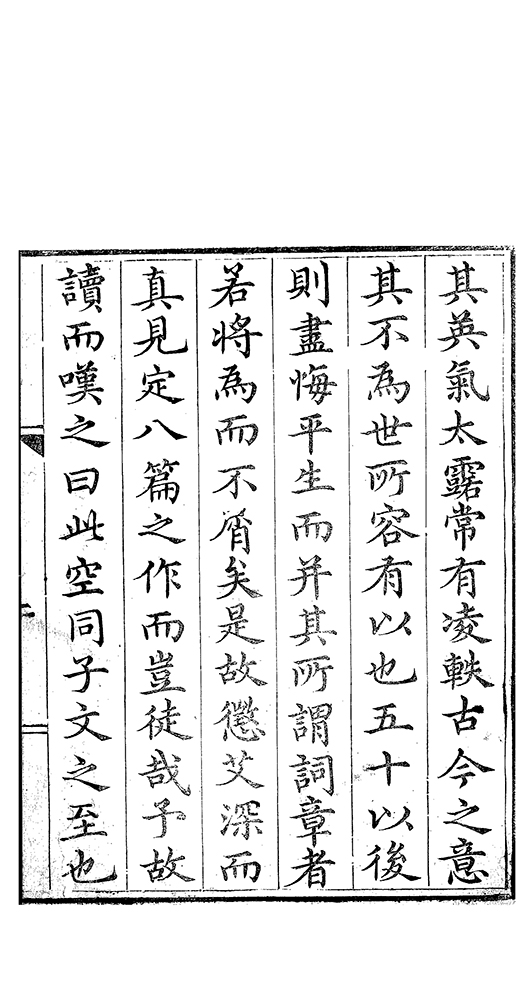 其英氣太露常有凌軼古今之意
其不為世所容有以也五十以後
則盡悔平生而并其所謂詞章者
若將為而不屑矣是故懲艾深而
真見定八篇之作而豈徒哉予故
讀而嘆之曰此空同子文之至也